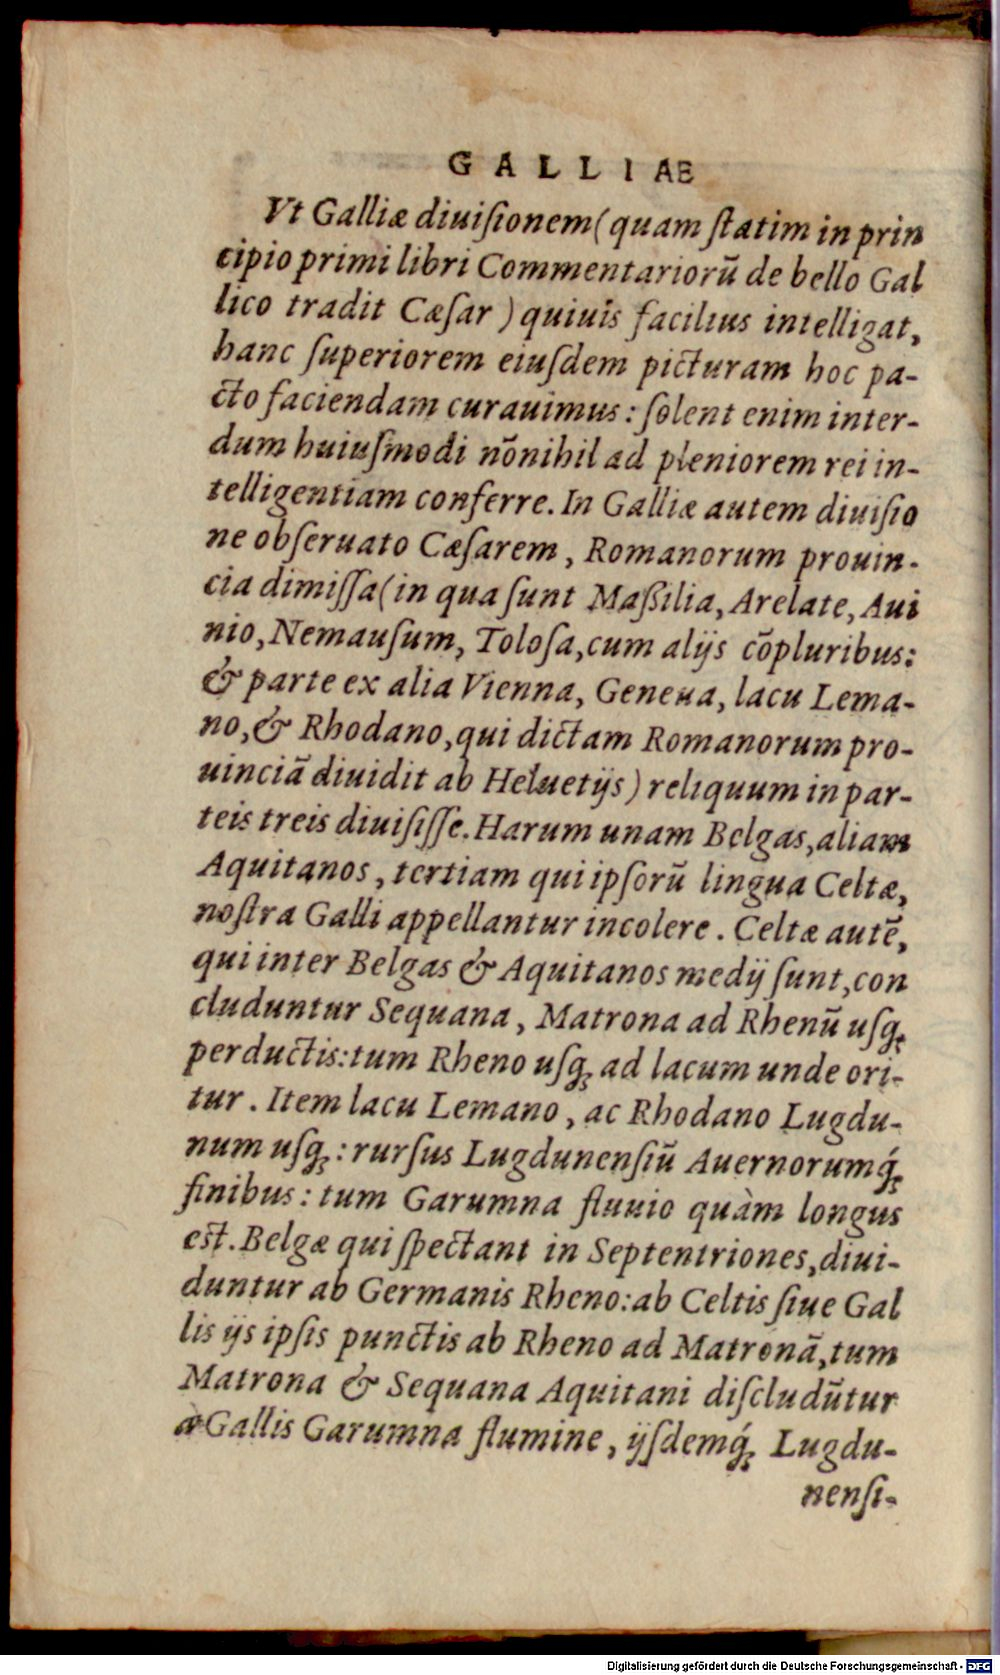 GALLIAE
Vt Galliæ diuiſionem (quam ſtatim in prin
cipio primi libri Commentariorũ de bello Gal
lico tradit Cæſar) quiuis facilius intelligat,
hanc ſuperiorem eiuſdem picturam hoc pa-
cto faciendam curauimus: ſolent enim inter-
dum huiuſmodi nõnihil ad pleniorem rei in-
telligentiam conferre. In Galliæ autem diuiſio
ne obſeruato Cæſarem, Romanorum prouin-
cia dimiſſa (in qua ſunt Maßilia, Arelate, Aui
nio, Nemauſum, Toloſa, cum alijs cõpluribus:
& parte ex alia Vienna, Geneua, lacu Lema-
no, & Rhodano, qui dictam Romanorum pro-
uinciã diuidit ab Heluetijs) reliquum in par-
teis treis diuiſiſſe. Harum unam Belgas, aliam
Aquitanos, tertiam qui ipſorũ lingua Celtæ,
noſtra Galli appellantur incolere. Celtæ autẽ,
qui inter Belgas & Aquitanos medij ſunt, con
cluduntur Sequana, Matrona ad Rhenũ uſꝗ
perductis: tum Rheno uſꝗ ad lacum unde ori-
tur. Item lacu Lemano, ac Rhodano Lugdu-
num uſꝗ: rurſus Lugdunenſiũ Auernorumꝗ́
finibus: tum Garumna fluuio quàm longus
eſt. Belgæ qui ſpectant in Septentriones, diui-
duntur ab Germanis Rheno: ab Celtis ſiue Gal
lis ijs ipſis punctis ab Rheno ad Matronã, tum
Matrona & Sequana Aquitani diſcludũtur
à Gallis Garumna flumine, ijſdemꝗ́ Lugdu-
nenſi-
Digitalisierung gefördert durch die Deutsche Forschungsgemeinschaft - DFG